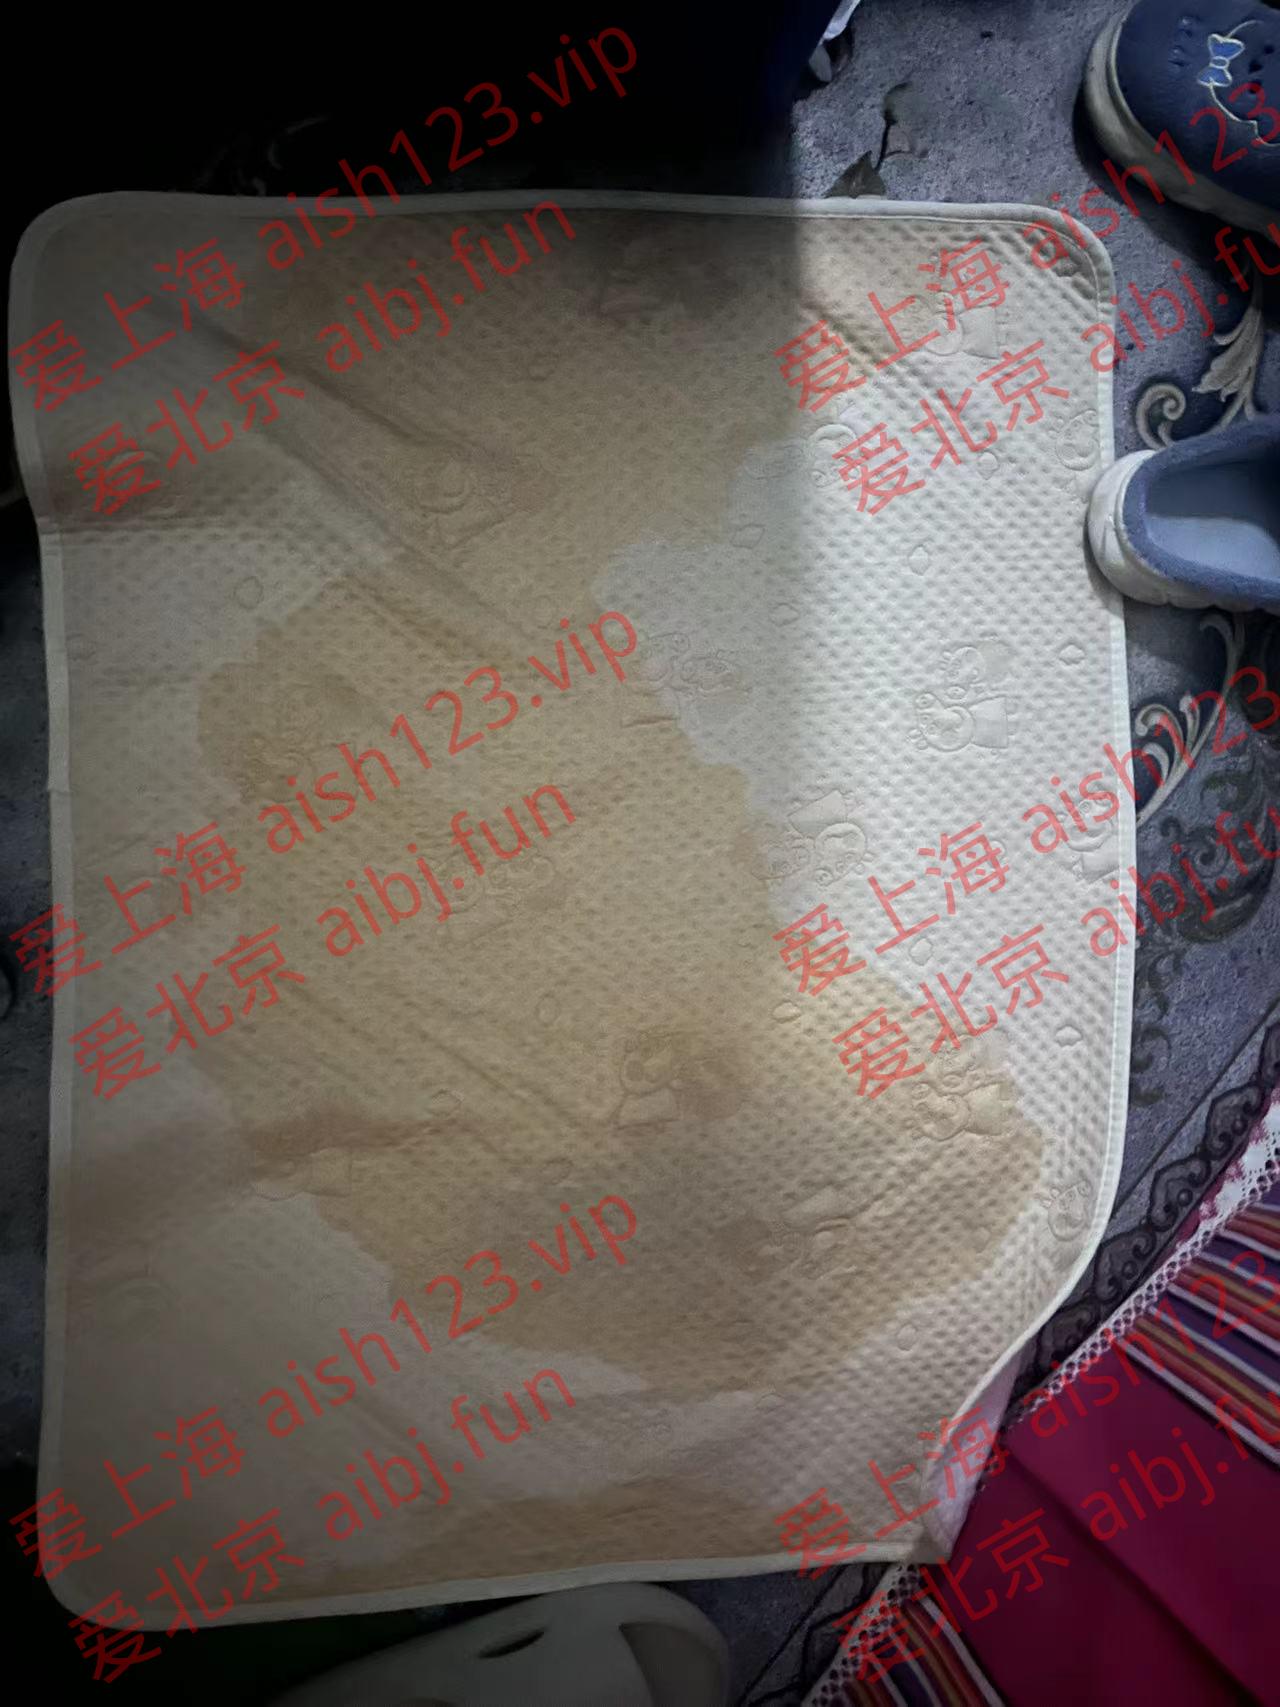 爱上海 aish123.vip
爱北京 aibj.fun
爱上海 aish123.vip
爱北京 aibj.fun
爱上海 aish123.vip
爱北京 aibj.fun
爱上海 aish123
爱北京 aibj.fun
爱上海 aish123
爱北京 aibj.fun
爱上海 aish123
爱北京 aibj.fun